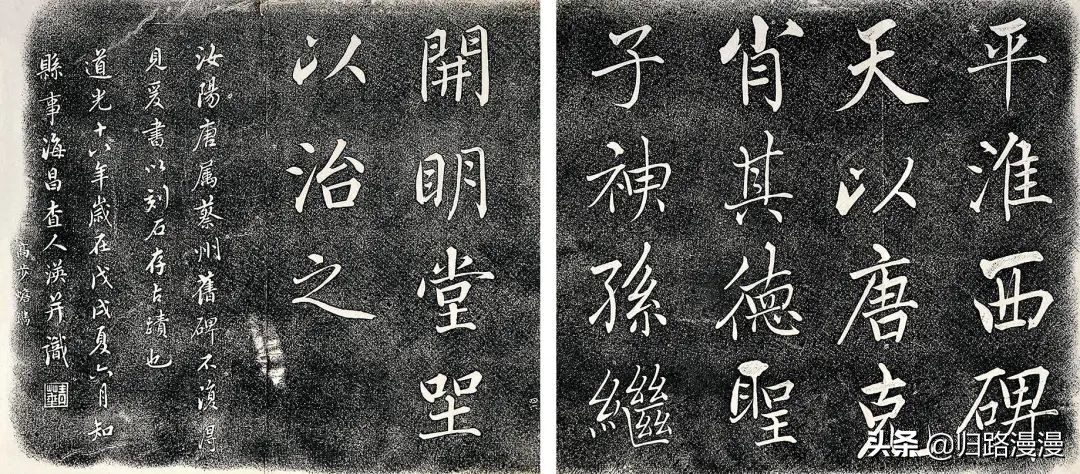 平淮西碑
天以唐克
肖其德聖
子神孫繼
開明堂坐
以治之
汝陽唐属蔡州舊碑不復得
見爰書以刻石存古蹟也
道光十八年歲在戊戌夏六月知
縣事海昌查人渶并識
头条 @归路漫漫